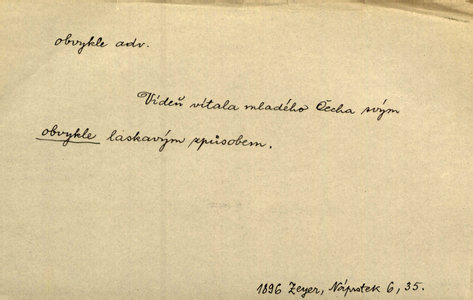 obvykle adv.
Vídeň vítala mladého Čecha svým
obvykle laskavým způsobem.
1896 Zeyer, Náprstek 6, 35.